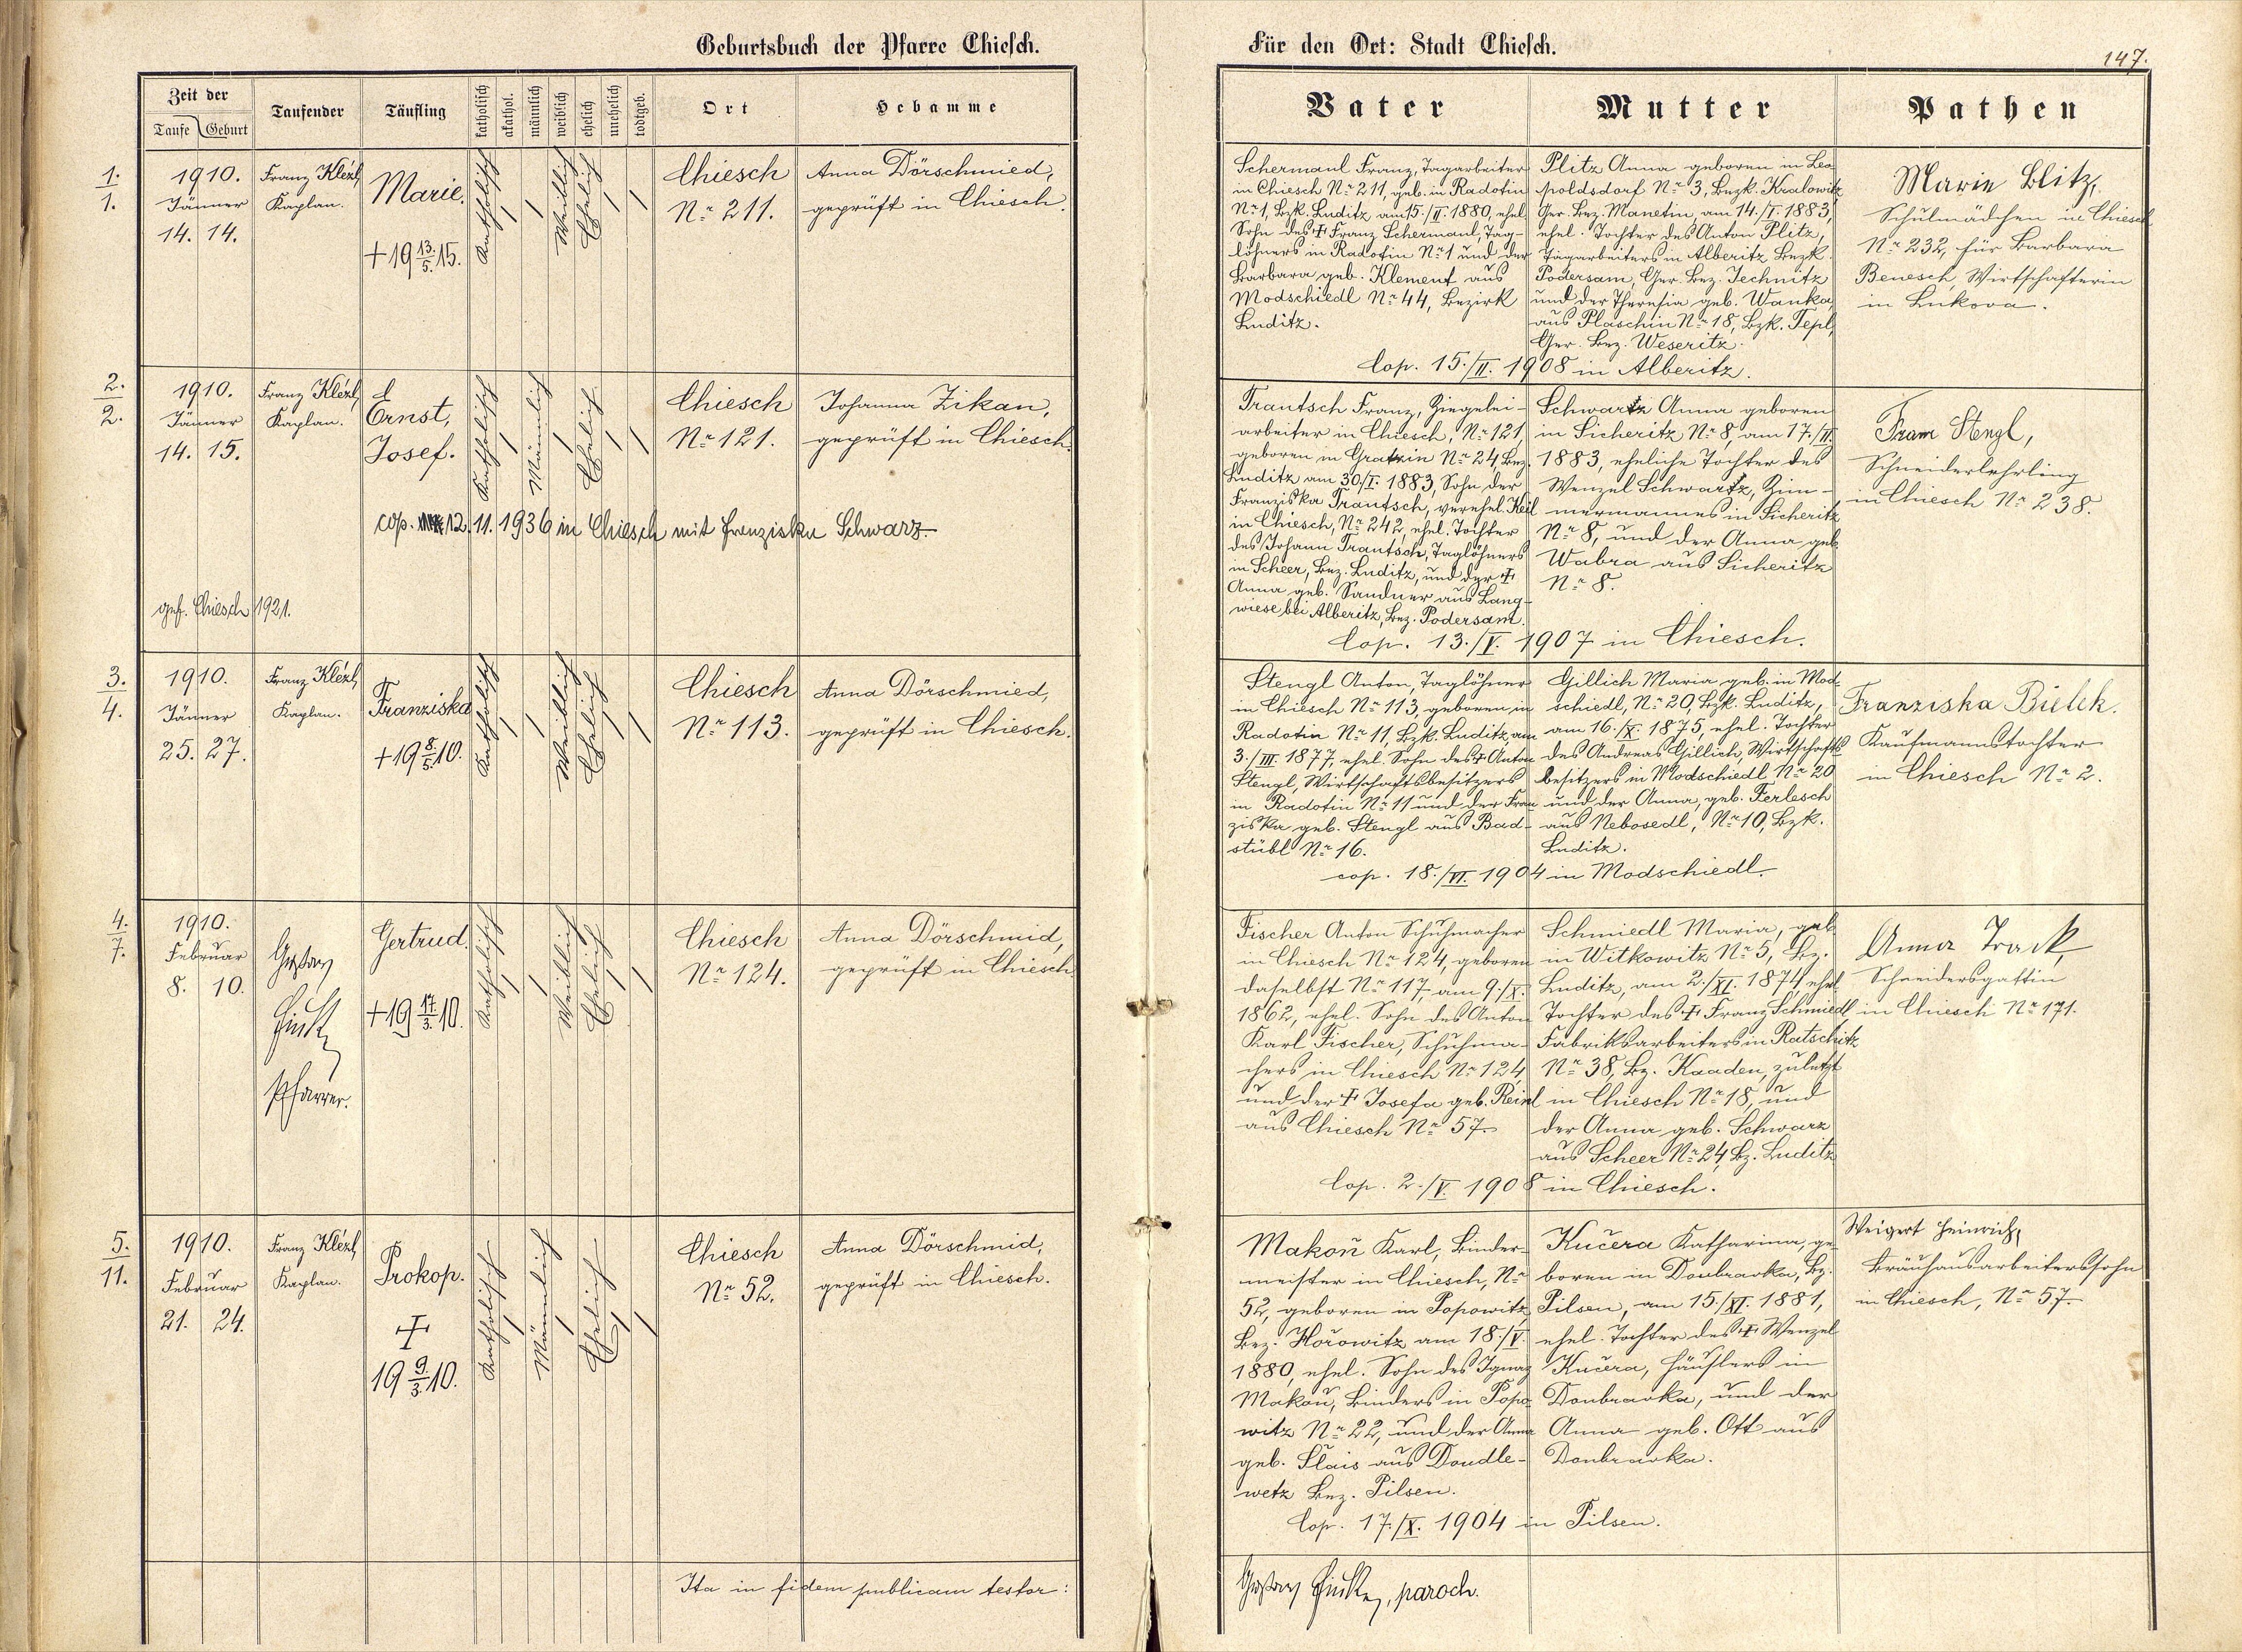 Geburtsbuch der Pfarre Chiesch.
Zeit der
Taufe Geburt
Taufender
Täufling
katholisch
akathol.
männlich
weiblich
ehelich
unehelich
todtgeb.
Ort
Hebamme
1.
1.
1910.
Jänner
14. 14.
Franz Klézl,
Kaplan.
Marie.
+ 19 13./5. 15.
Katholisch
Weiblich
Ehelich
Chiesch
Nr 211.
Anna Dörschmied,
geprüft in Chiesch.
2.
2.
1910.
Jänner
14. 15.
Franz Klézl,
Kaplan.
Ernst,
Josef.
Katholisch
Männlich
Ehelich
Chiesch
Nr 121.
Johanna Zikan,
geprüft in Chiesch.
cop. 12. 11. 1936 in Chiesch mit Franziska Schwarz.
gef. Chiesch 1921.
3.
4.
1910.
Jänner
25. 27.
Franz Klézl,
Kaplan.
Franziska
+ 19 8./5. 10.
Katholisch
Weiblich
Ehelich
Chiesch
Nr 113.
Anna Dörschmied,
geprüft in Chiesch.
4.
7.
1910.
Februar
8. 10.
Gustav
Pfarrer.
Gertrud.
+ 19 17./3. 10.
Katholisch
Weiblich
Ehelich
Chiesch
Nr 124.
Anna Dörschmid,
geprüft in Chiesch
5.
11.
1910.
Februar
21. 24.
Franz Klézl,
Kaplan.
Prokop.
+
19 9./3. 10.
Katholisch
Männlich
Ehelich
Chiesch
Nr 52.
Anna Dörschmid,
geprüft in Chiesch.
Ita in fidem publicam testor:
Für den Ort: Stadt Chiesch.
147.
Vater
Mutter
Pathen
Schermaul Franz, Tagarbeiter
in Chiesch Nr 211, geb. in Radotin
Nr 1, Bzk. Luditz am 15./II. 1880, ehel.
Sohn des + Franz Schermaul, Tag-
löhners in Radotin Nr 1 und der
Barbara geb. Klement aus
Modschiedl Nr 44, Bezirk
Luditz.
Plitz Anna geboren in Leo
poldsdorf Nr 3, Bezk. Kralowitz
Ger. Bez. Manetin, am 14./I. 1883,
ehel. Tochter des Anton Plitz,
Tagarbeiters in Alberitz Bezk.
Podersam, Ger. Bez. Jechnitz
und der Theresia geb. Wanka,
aus Plaschin Nr 18, Bzk. Tepl,
Ger. Bez. Weseritz.
Cop. 15./II. 1908 in Alberitz.
Marie Blitz,
Schulmädchen in Chiesch
Nr 232, für Barbara
Benesch, Wirtschafterin
in Lukova.
Trautsch Franz, Ziegelei-
arbeiter in Chiesch, Nr 121,
geboren in Gratzin Nr 24, Bez.
Luditz am 30/I. 1883, Sohn der
Franziska Trautsch, verehel. Keil
in Chiesch, Nr 242, ehel. Tochter
des Johann Trautsch, Taglöhners
in Scheer, Bez. Luditz, und der +
Anna geb. Sandner aus Lang-
wiese bei Alberitz, Bez. Podersam.
Schwartz Anna geboren
in Sicheritz Nr 8, am 17./II.
1883, eheliche Tochter des
Wenzel Schwartz, Zim-
mermannes in Sicheritz
Nr 8, und der Anna geb.
Wabra aus Sicheritz
Nr 8.
Cop. 13./V. 1907 in Chiesch.
Franz Stengl,
Schneiderlehrling
in Chiesch Nr 238.
Stengl Anton, Taglöhner
in Chiesch Nr 113, geboren in
Radotin Nr 11, Bzk. Luditz, am
3./III. 1877, ehel. Sohn des + Anton
Stengl, Wirtschaftsbesitzers
in Radotin Nr 11 und der Fran
ziska geb. Stengl aus Bad-
stübl Nr 16.
Gillich Maria geb. in Mod-
schiedl, Nr 20, Bzk. Luditz,
am 16./X. 1875, ehel. Tochter
des Andreas Gillich, Wirtschafts
besitzers in Modschiedl, Nr 20
und der Anna, geb. Ferlesch
aus Nebosedl, Nr 10, Bzk.
Luditz.
cop. 18./VI. 1904 in Modschiedl.
Franziska Bielek.
Kaufmannstochter
in Chiesch Nr 2.
Fischer Anton Schuhmacher
in Chiesch Nr 124, geboren
daselbst Nr 117, am 9./X.
1862, ehel. Sohn des Anton
Karl Fischer, Schuhma-
chers in Chiesch Nr 124,
und der + Josefa geb. Reinl
aus Chiesch Nr 57.
Schmiedl Maria, geb.
in Witkowitz Nr 5, Bz.
Luditz, am 2./XI. 1874, ehel.
Tochter des + Franz Schmiedl
Fabriksarbeiters in Ratschitz
Nr 38, Bz. Kaaden, zuletzt
in Chiesch Nr 18, und
der Anna geb. Schwarz
aus Scheer Nr 24, Bz. Luditz
Cop. 2./V. 1908 in Chiesch.
Anna Track,
Schneidersgattin
in Chiesch Nr 171.
Makoň Karl, Binder-
meister in Chiesch, Nr
52, geboren in Popowitz
Bez. Hořowitz am 18./V.
1880, ehel. Sohn des Ignaz
Makoň, Binders in Popo
witz Nr 22, und der Anna
geb. Šlais aus Doudle-
wetz Bez. Pilsen.
Kučera Katharina, ge-
boren in Doubravka, Bz.
Pilsen, am 15./XI. 1881,
ehel. Tochter des + Wenzel
Kučera, Häuslers in
Doubravka, und der
Anna geb. Ott aus
Doubravka.
Cop. 17./X. 1904 in Pilsen.
Weigert Heinrich,
Bräuhausarbeiterssohn
in Chiesch, Nr 57.
Gustav, paroch.